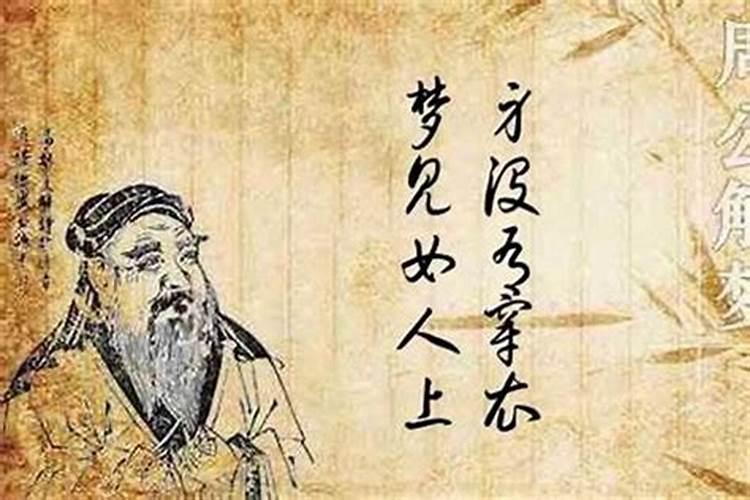 梦见女人上
身没有穿衣
周公解梦